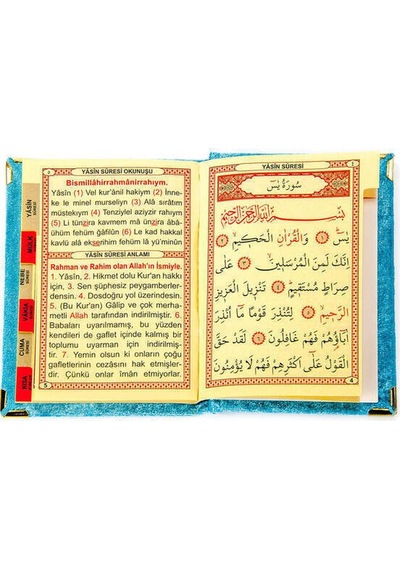 YÂSÎN SÛRESİ
سُورَةُ يٰسٓ
بِسْمِ اللّٰهِ الرَّحْمٰنِ الرَّحِيمِ
يٰسٓ ﴿١﴾ وَالْقُرْاٰنِ الْحَكِيمِ ﴿٢﴾
اِنَّكَ لَمِنَ الْمُرْسَلِينَ ﴿٣﴾ عَلٰى
صِرَاطٍ مُسْتَقِيمٍ ﴿٤﴾ تَنْزِيلَ الْعَزِيزِ
الرَّحِيمِ ﴿٥﴾ لِتُنْذِرَ قَوْمًا مَا اُنْذِرَ
اٰبَاؤُهُمْ فَهُمْ غَافِلُونَ ﴿٦﴾ لَقَدْ حَقَّ
الْقَوْلُ عَلٰى اَكْثَرِهِمْ فَهُمْ لَا يُؤْمِنُونَ
4
YÂSÎN SÛRESİ OKUNUŞU
Bismillâhirrahmânirrahıym.
Yâsîn (1) Vel kur'ânil hakiym (2) İnne-
ke le minel murseliyn (3) Alâ sırâtım
müstekıym (4) Tenziylel aziyzir rahıym
(5) Li tünzira kavmem mâ ünzira âbâ-
ühüm fehüm gâfilûn (6) Le kad hakkal
kavlü alâ ekserihim fehüm lâ yü'minûn
YÂSÎN SÛRESİ ANLAMI
Rahman ve Rahim olan Allah'ın İsmiyle.
1. Yâsîn, 2. Hikmet dolu Kur'an hakkı
için, 3. Sen şüphesiz peygamberler-
densin. 4. Dosdoğru yol üzerindesin.
5. (Bu Kur'an) Gâlip ve çok merha-
metli Allah tarafından indirilmiştir. 6.
Babaları uyarılmamış, bu yüzden
kendileri de gaflet içinde kalmış bir
toplumu uyarman için indirilmiş-
tir. 7. Yemin olsun ki onların çoğu
gafletlerinin cezâsını hak etmişler-
dir. Çünkü onlar îmân etmiyorlar.
5
YÂSÎN
MÜLK
NEBE
VÂKIA
CUMA